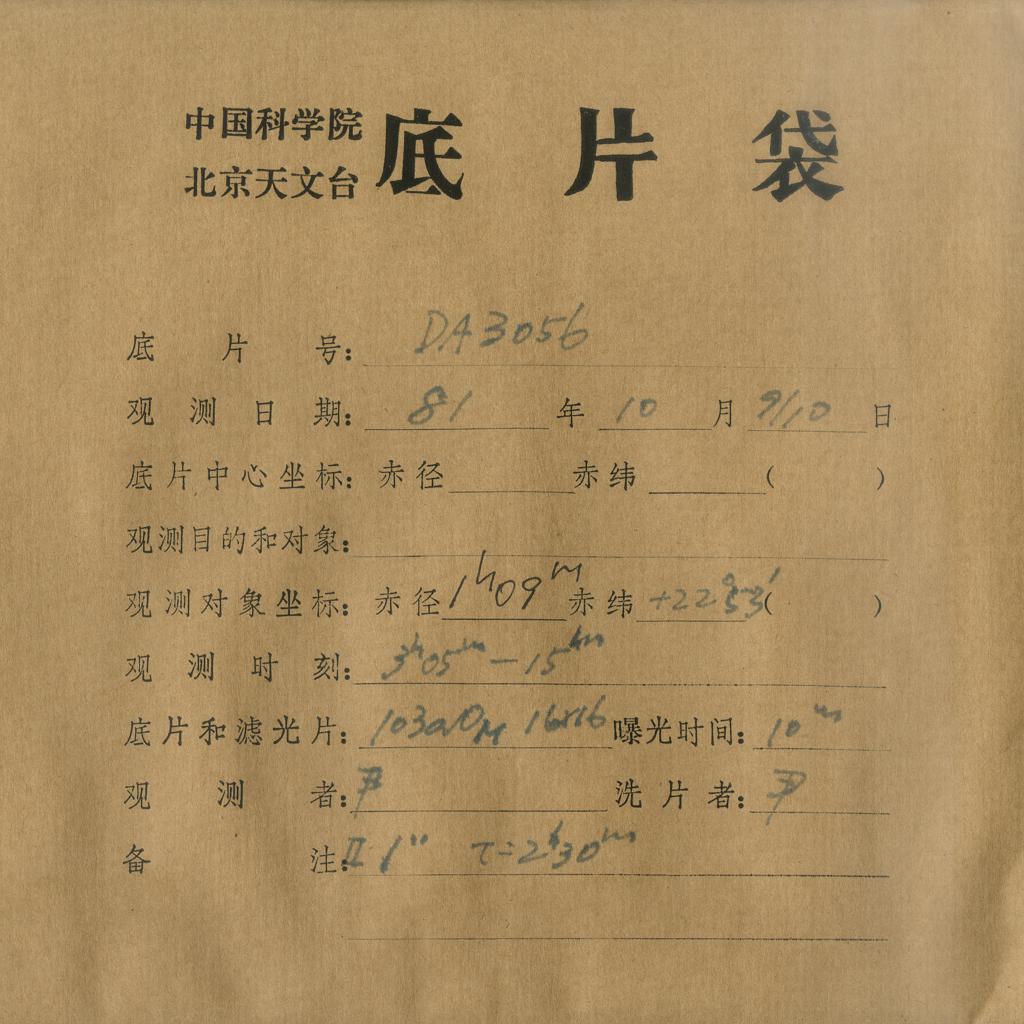 中国科学院
北京天文台
底片袋
底片号: DA3056
观测日期: 81年10月9/10日
底片中心坐标: 赤径 赤纬 ( )
观测目的和对象:
观测对象坐标: 赤径 1h09m 赤纬 +22°53′( )
观测时刻: 3h05m-15hm
底片和滤光片: 103aO 16x16 曝光时间: 10m
观测者: 尹 洗片者: 尹
备注: II 1" τ=2h30m